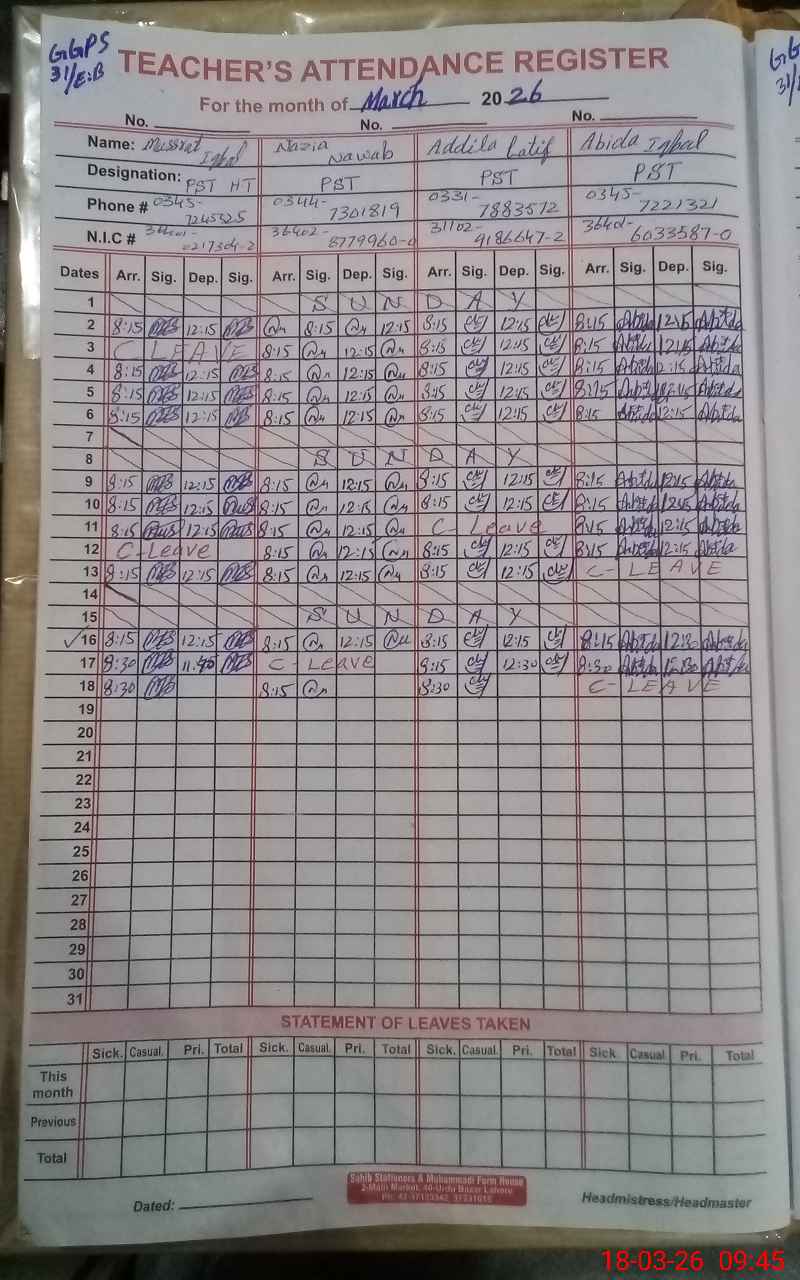 GGPS
31/E.B
TEACHER'S ATTENDANCE REGISTER
For the month of March 2026
No. No. No.
Name: Mussrat Iqbal Nazia Nawab Addila Latif Abida Iqbal
Designation: PST HT PST PST PST
Phone # 0345-7245325 0344-7301819 0331-7883572 0345-7221321
N.I.C # 36402-8779960- 31102-9186647-2 36401-6033587-0
Dates Arr. Sig. Dep. Sig. Arr. Sig. Dep. Sig. Arr. Sig. Dep. Sig. Arr. Sig. Dep. Sig.
1 SUNDAY
2 8:15 12:15 8:15 12:15 8:15 12:15 8:15 Abida 12:15 Abida
3 C LEAVE 8:15 12:15 8:15 12:15 8:15 Abida 12:15 Abida
4 8:15 12:15 8:15 12:15 8:15 12:15 8:15 Abida 12:15 Abida
5 8:15 12:15 8:15 12:15 8:15 12:15 8:15 Abida 12:15 Abida
6 8:15 12:15 8:15 12:15 8:15 12:15 8:15 Abida 12:15 Abida
7
8 SUNDAY
9 8:15 12:15 8:15 12:15 8:15 12:15 8:15 Abida 12:15 Abida
10 8:15 12:15 8:15 12:15 8:15 12:15 8:15 Abida 12:15 Abida
11 8:15 12:15 8:15 12:15 C-Leave 8:15 Abida 12:15 Abida
12 C-Leave 8:15 12:15 8:15 12:15 8:15 Abida 12:15 Abida
13 8:15 12:15 8:15 12:15 8:15 12:15 C-LEAVE
14
15 SUNDAY
16 8:15 12:15 8:15 12:15 8:15 12:15 8:15 Abida 12:30 Abida
17 8:30 C-Leave 8:15 12:30 8:30 Abida 12:30 Abida
18 8:30 8:15 8:30 C-LEAVE
19
20
21
22
23
24
25
26
27
28
29
30
31
STATEMENT OF LEAVES TAKEN
Sick. Casual. Pri. Total Sick. Casual. Pri. Total Sick. Casual. Pri. Total Sick. Casual Pri. Total
This month
Previous
Total
Sahib Stationers & Muhammadi Form House
2-Main Market, 40-Urdu Bazar Lahore
Dated: Headmistress/Headmaster
18-03-26 09:45